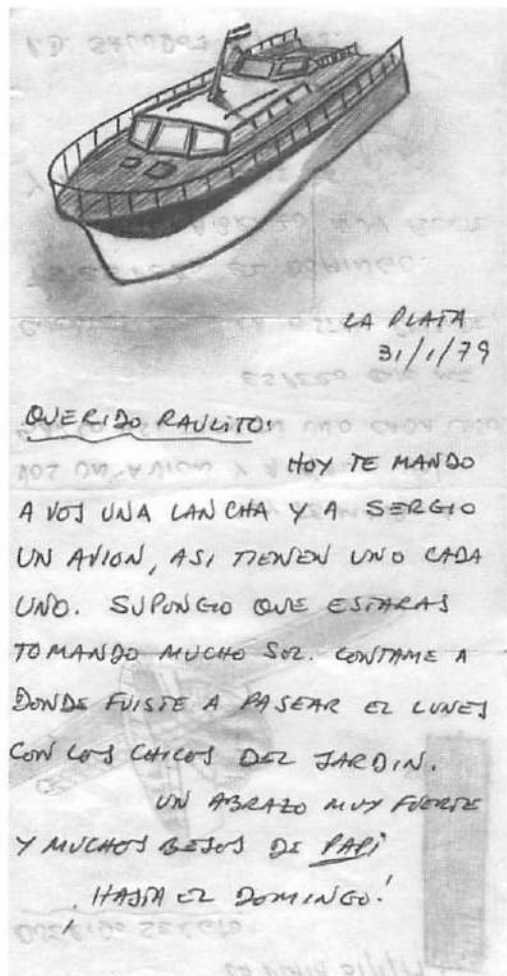 LA PLATA
31/1/79
QUERIDO RAULITO:
HOY TE MANDO
A VOS UNA LANCHA Y A SERGIO
UN AVION, ASI TIENEN UNO CADA
UNO. SUPONGO QUE ESTARAS
TOMANDO MUCHO SOL. CONTAME A
DONDE FUISTE A PASEAR EL LUNES
CON LOS CHICOS DEL JARDIN.
UN ABRAZO MUY FUERTE
Y MUCHOS BESOS DE PAPI
HASTA EL DOMINGO!